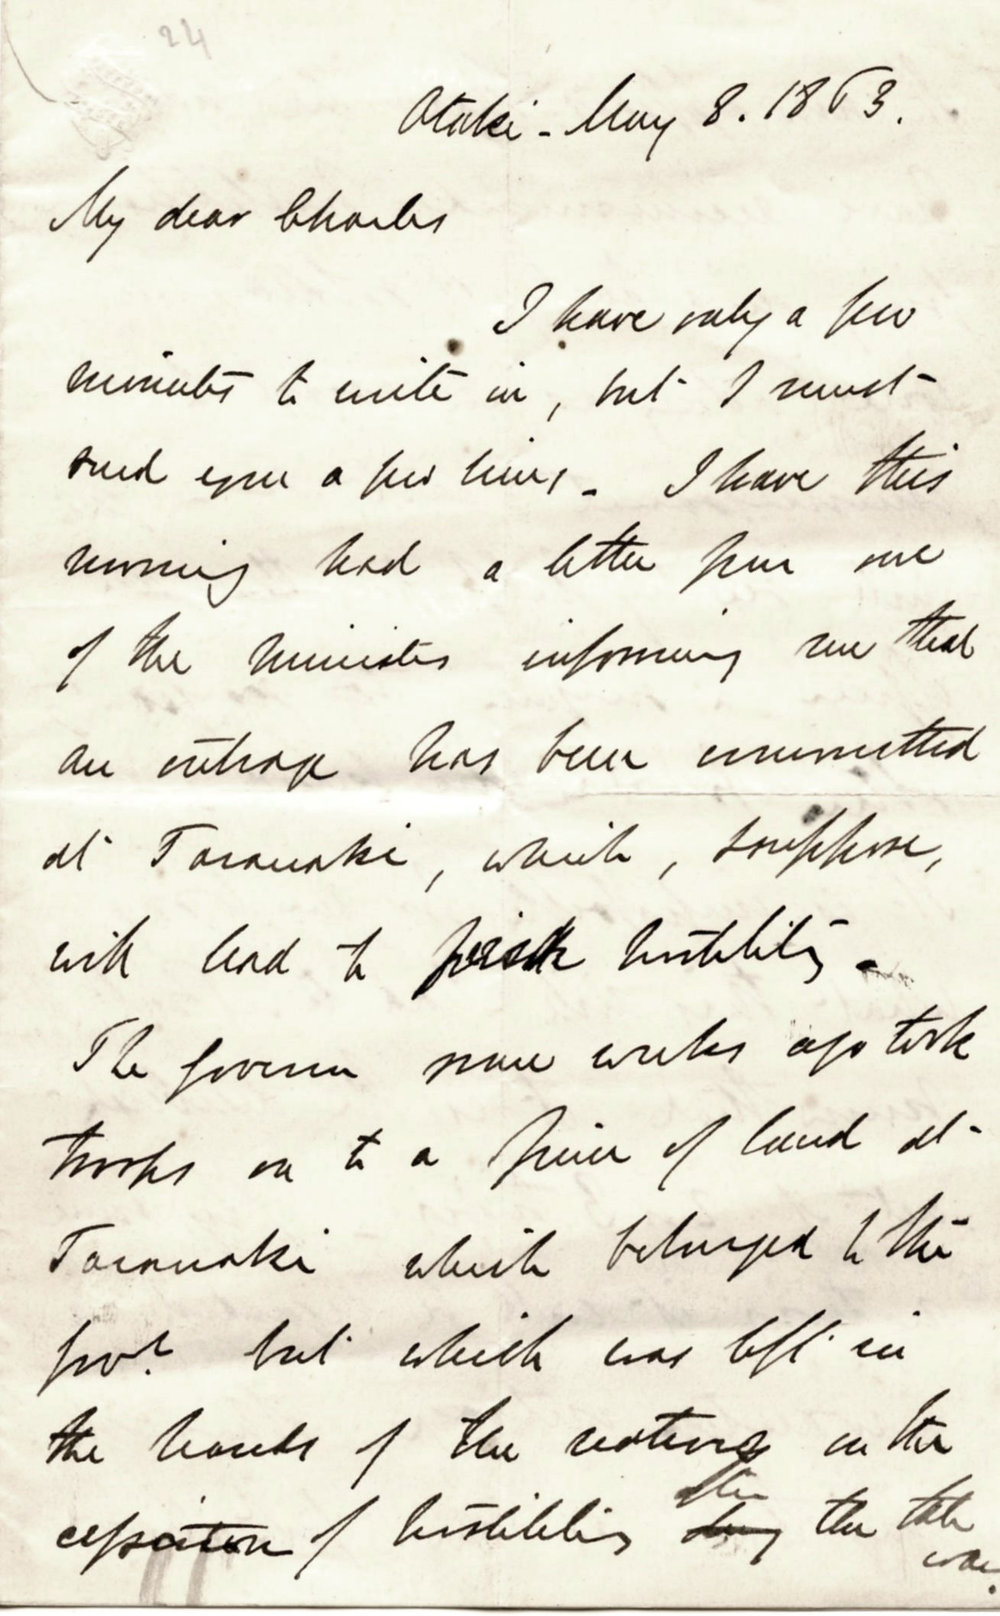 24
Otaki - May 8. 1863.
My dear Charles
I have only a few
minutes to write in, but I must
send you a few lines - I have this
morning had a letter from one
of the ministers informing me that
an outrage has been committed
at Taranaki, which, I suppose,
will lead to fresh hostility -
The Governor some weeks ago took
troops on to a piece of land at
Taranaki which belonged to the
Govt. but which was left in
the hands of the natives on the
cessation of hostilities after the late
war.